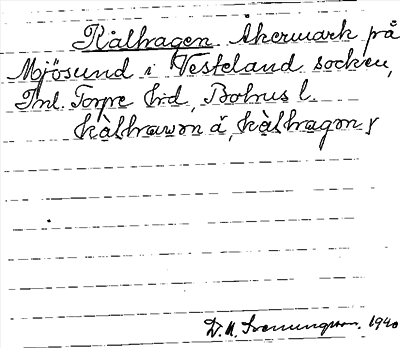 Kålhagen Åkermark på
Mjösund i Vesteland socken,
Inl. Torpe hd, Bohus l.
kàlhawɷn å, kàlhagɷn ɤ
D. A. Svenungsson. 1940